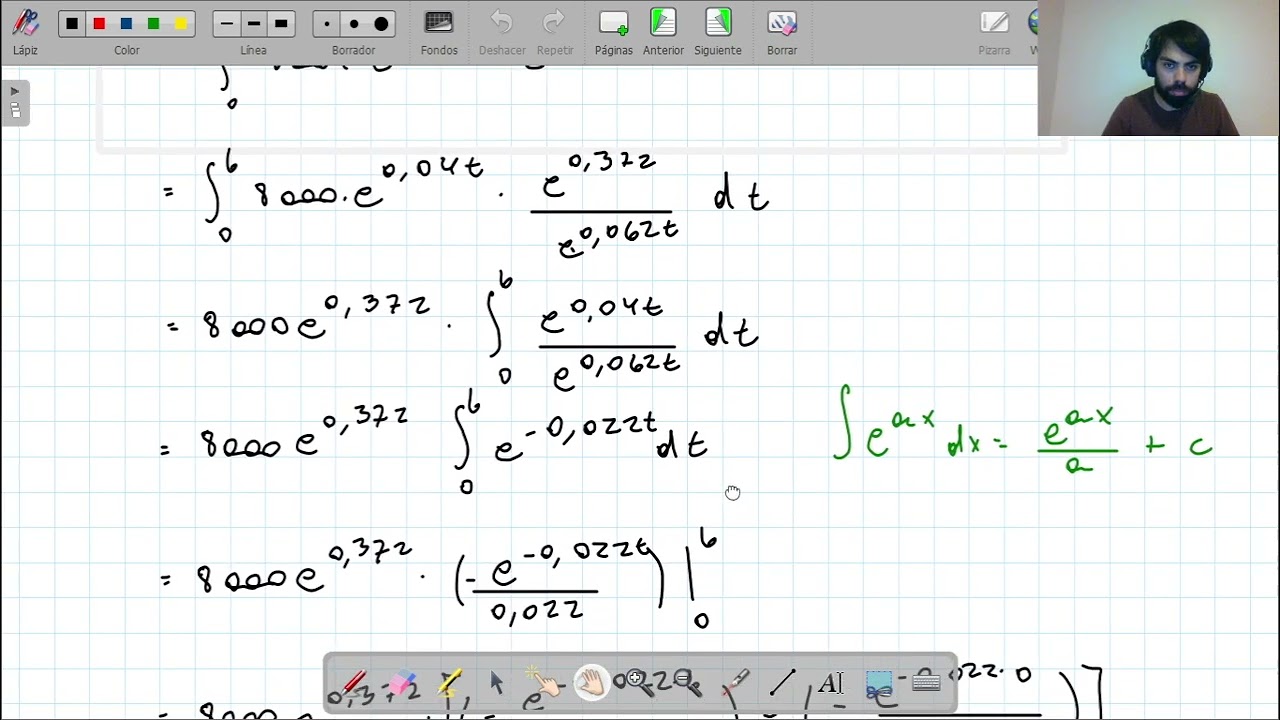 Lápiz Color Línea Borrador Fondos Deshacer Repetir Páginas Anterior Siguiente Borrar Pizarra
0
= ∫₀⁶ 8000·e^{0,04t} · e^{0,372} / e^{0,062t} dt
= 8000e^{0,372} · ∫₀⁶ e^{0,04t} / e^{0,062t} dt
= 8000e^{0,372} ∫₀⁶ e^{-0,022t} dt
∫ e^{ax} dx = e^{ax} / a + c
= 8000e^{0,372} · (- e^{-0,022t} / 0,022) |₀⁶